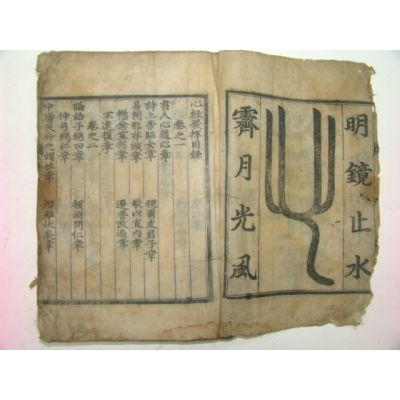 明鏡止水
霽月光風
心經發揮目錄
卷之一
書人心道心章
詩上帝臨女章 視爾友君子章
易閑邪存誠章 敬以直內章
懲忿窒慾章 遷善改過章
不遠復章
卷之二
論語子絶四章 顏淵問仁章
仲弓問仁章
中庸天命之謂性章 潛雖伏矣章